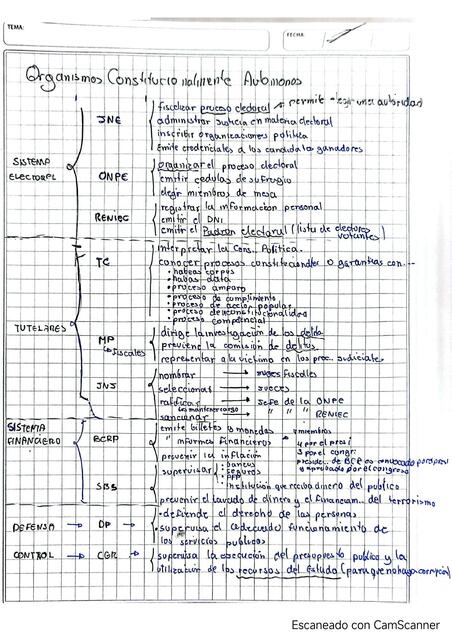 TEMA:
FECHA:
Organismos Constitucionalmente Autonomos
SISTEMA ELECTORAL
JNE
fiscalizar proceso electoral → permite elegir una autoridad
administrar justicia en materia electoral
inscribir organizaciones politica
emite credenciales a los candidatos ganadores
ONPE
organizar el proceso electoral
emitir cedulas de sufragio
elegir miembros de mesa
RENIEC
registrar la informacion personal
emitir el DNI
emitir el Padron electoral (lista de electores votantes)
TUTELARES
TC
interpretar la Cons. Politica.
conocer procesos constitucionales o garantias con...
• habeas corpus
• habas data
• proceso amparo
• proceso de cumplimiento
• proceso de accion popular
• proceso de inconstitucionalidad
• proceso competencial
MP
↳ fiscales
dirige la investigacion de los delito
previene la comision de delitos.
representar a la victima en los proc. judiciales
JNJ
nombrar → jueces fiscales
seleccionar → jueces
ratificar → Jefe de la ONPE
los mantener cargo
sancionar → " " " RENIEC
SISTEMA FINANCIERO
BCRP
emite billetes y monedas
" informes financieros
prevenir la inflación
7 miembros
4 por el presi
3 por el congr.
y aprobado por el congreso
SBS
supervisar
• bancos
• seguros
• AFP
• institución que reciba dinero del publico
prevenir el lavado de dinero y el financiam. del terrorismo
DEFENSA → DP →
• defiende el derecho de las personas
• supervisa el adecuado funcionamiento de
los servicios publicos
CONTROL → CGR →
supervisa la ejecución del presupuesto publico y la
utilización de los recursos del Estado (para que no haya corrupcion)
Escaneado con CamScanner